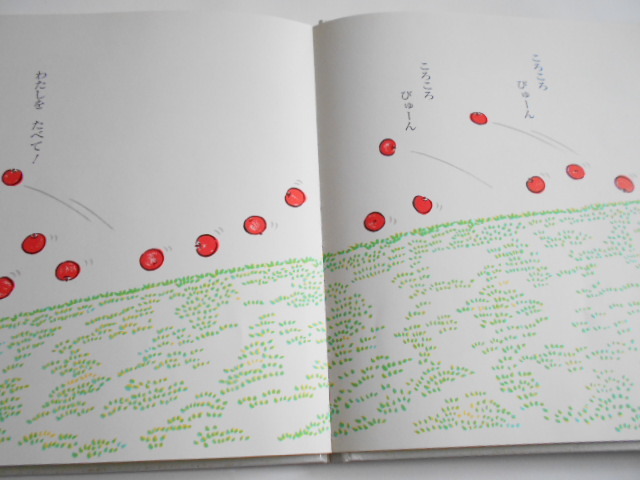 ころころ
びゅーん
ころころ
びゅーん
わたしを たべて!